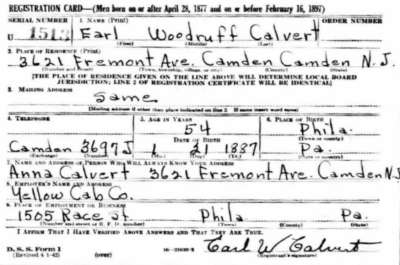 REGISTRATION CARD—(Men born on or after April 28, 1877 and on or before February 16, 1897)
SERIAL NUMBER 1. NAME (Print) ORDER NUMBER
U 1513 Earl Woodruff Calvert
(First) (Middle) (Last)
2. PLACE OF RESIDENCE (Print)
3621 Fremont Ave. Camden Camden N.J.
(Number and street) (Town, township, village, or city) (County) (State)
[THE PLACE OF RESIDENCE GIVEN ON THE LINE ABOVE WILL DETERMINE LOCAL BOARD
JURISDICTION; LINE 2 OF REGISTRATION CERTIFICATE WILL BE IDENTICAL]
3. MAILING ADDRESS
Same
[Mailing address if other than place indicated on line 2. If same insert word same]
4. TELEPHONE 5. AGE IN YEARS 6. PLACE OF BIRTH
54 Phila.
DATE OF BIRTH (Town or county)
Camden 3697J 1 21 1887 Pa.
(Exchange) (Number) (Mo.) (Day) (Yr.) (State or country)
7. NAME AND ADDRESS OF PERSON WHO WILL ALWAYS KNOW YOUR ADDRESS
Anna Calvert 3621 Fremont Ave. Camden NJ
8. EMPLOYER'S NAME AND ADDRESS
Yellow Cab Co.
9. PLACE OF EMPLOYMENT OR BUSINESS
1505 Race St. Phila Pa.
(Number and street or R. F. D. number) (Town) (County) (State)
I AFFIRM THAT I HAVE VERIFIED ABOVE ANSWERS AND THAT THEY ARE TRUE.
D. S. S. Form 1
(Revised 4-1-42) (over) Earl W Calvert
(Registrant's signature)